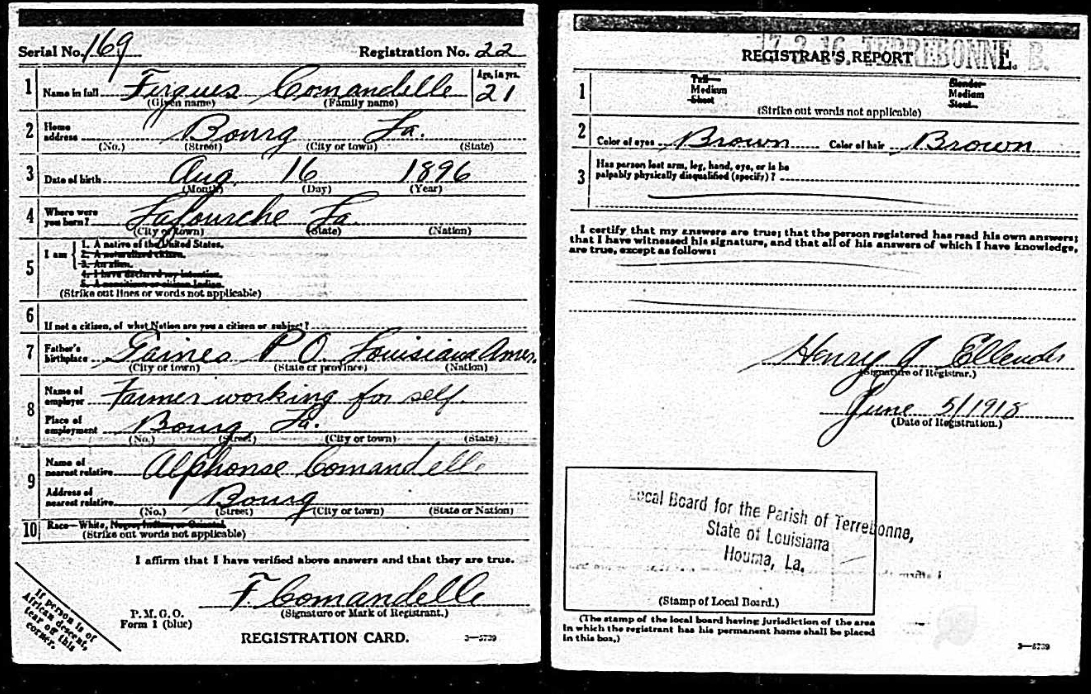 Serial No. 169 Registration No. 22
1 Name in full Firgues Comandelle Age, in yrs. 21
(Given name) (Family name)
2 Home address Bourg La.
(No.) (Street) (City or town) (State)
3 Date of birth Aug. 16 1896
(Month) (Day) (Year)
4 Where were you born? Lafourche La.
(City or town) (State) (Nation)
5 I am
1. A native of the United States.
2. A naturalized citizen.
3. An alien.
4. I have declared my intention.
5. A noncitizen or citizen Indian.
(Strike out lines or words not applicable)
6
If not a citizen, of what Nation are you a citizen or subject?
7 Father's birthplace Gaines P O. Louisiana Amer.
(City or town) (State or province) (Nation)
8 Name of employer Farmer working for self.
Place of employment Bourg La.
(No.) (Street) (City or town) (State)
9 Name of nearest relative Alphonse Comandelle
Address of nearest relative Bourg
(No.) (Street) (City or town) (State or Nation)
10 Race—White, Negro, Indian, or Oriental
(Strike out words not applicable)
I affirm that I have verified above answers and that they are true.
F Comandelle
P. M. G. O. (Signature or Mark of Registrant.)
Form 1 (blue)
REGISTRATION CARD. 3—5739
If person is of
African descent,
tear off this
corner.
17-2-16 TERREBONNE. B.
REGISTRAR'S REPORT
1
Tall Slender
Medium Medium
Short Stout
(Strike out words not applicable)
2 Color of eyes Brown Color of hair Brown
3 Has person lost arm, leg, hand, eye, or is he
palpably physically disqualified (specify)?
I certify that my answers are true; that the person registered has read his own answers;
that I have witnessed his signature, and that all of his answers of which I have knowledge,
are true, except as follows:
Henry J Ellender
(Signature of Registrar.)
June 5/1918
(Date of Registration.)
Local Board for the Parish of Terrebonne,
State of Louisiana
Houma, La.
(Stamp of Local Board.)
(The stamp of the local board having jurisdiction of the area
in which the registrant has his permanent home shall be placed
in this box.)
3—5739